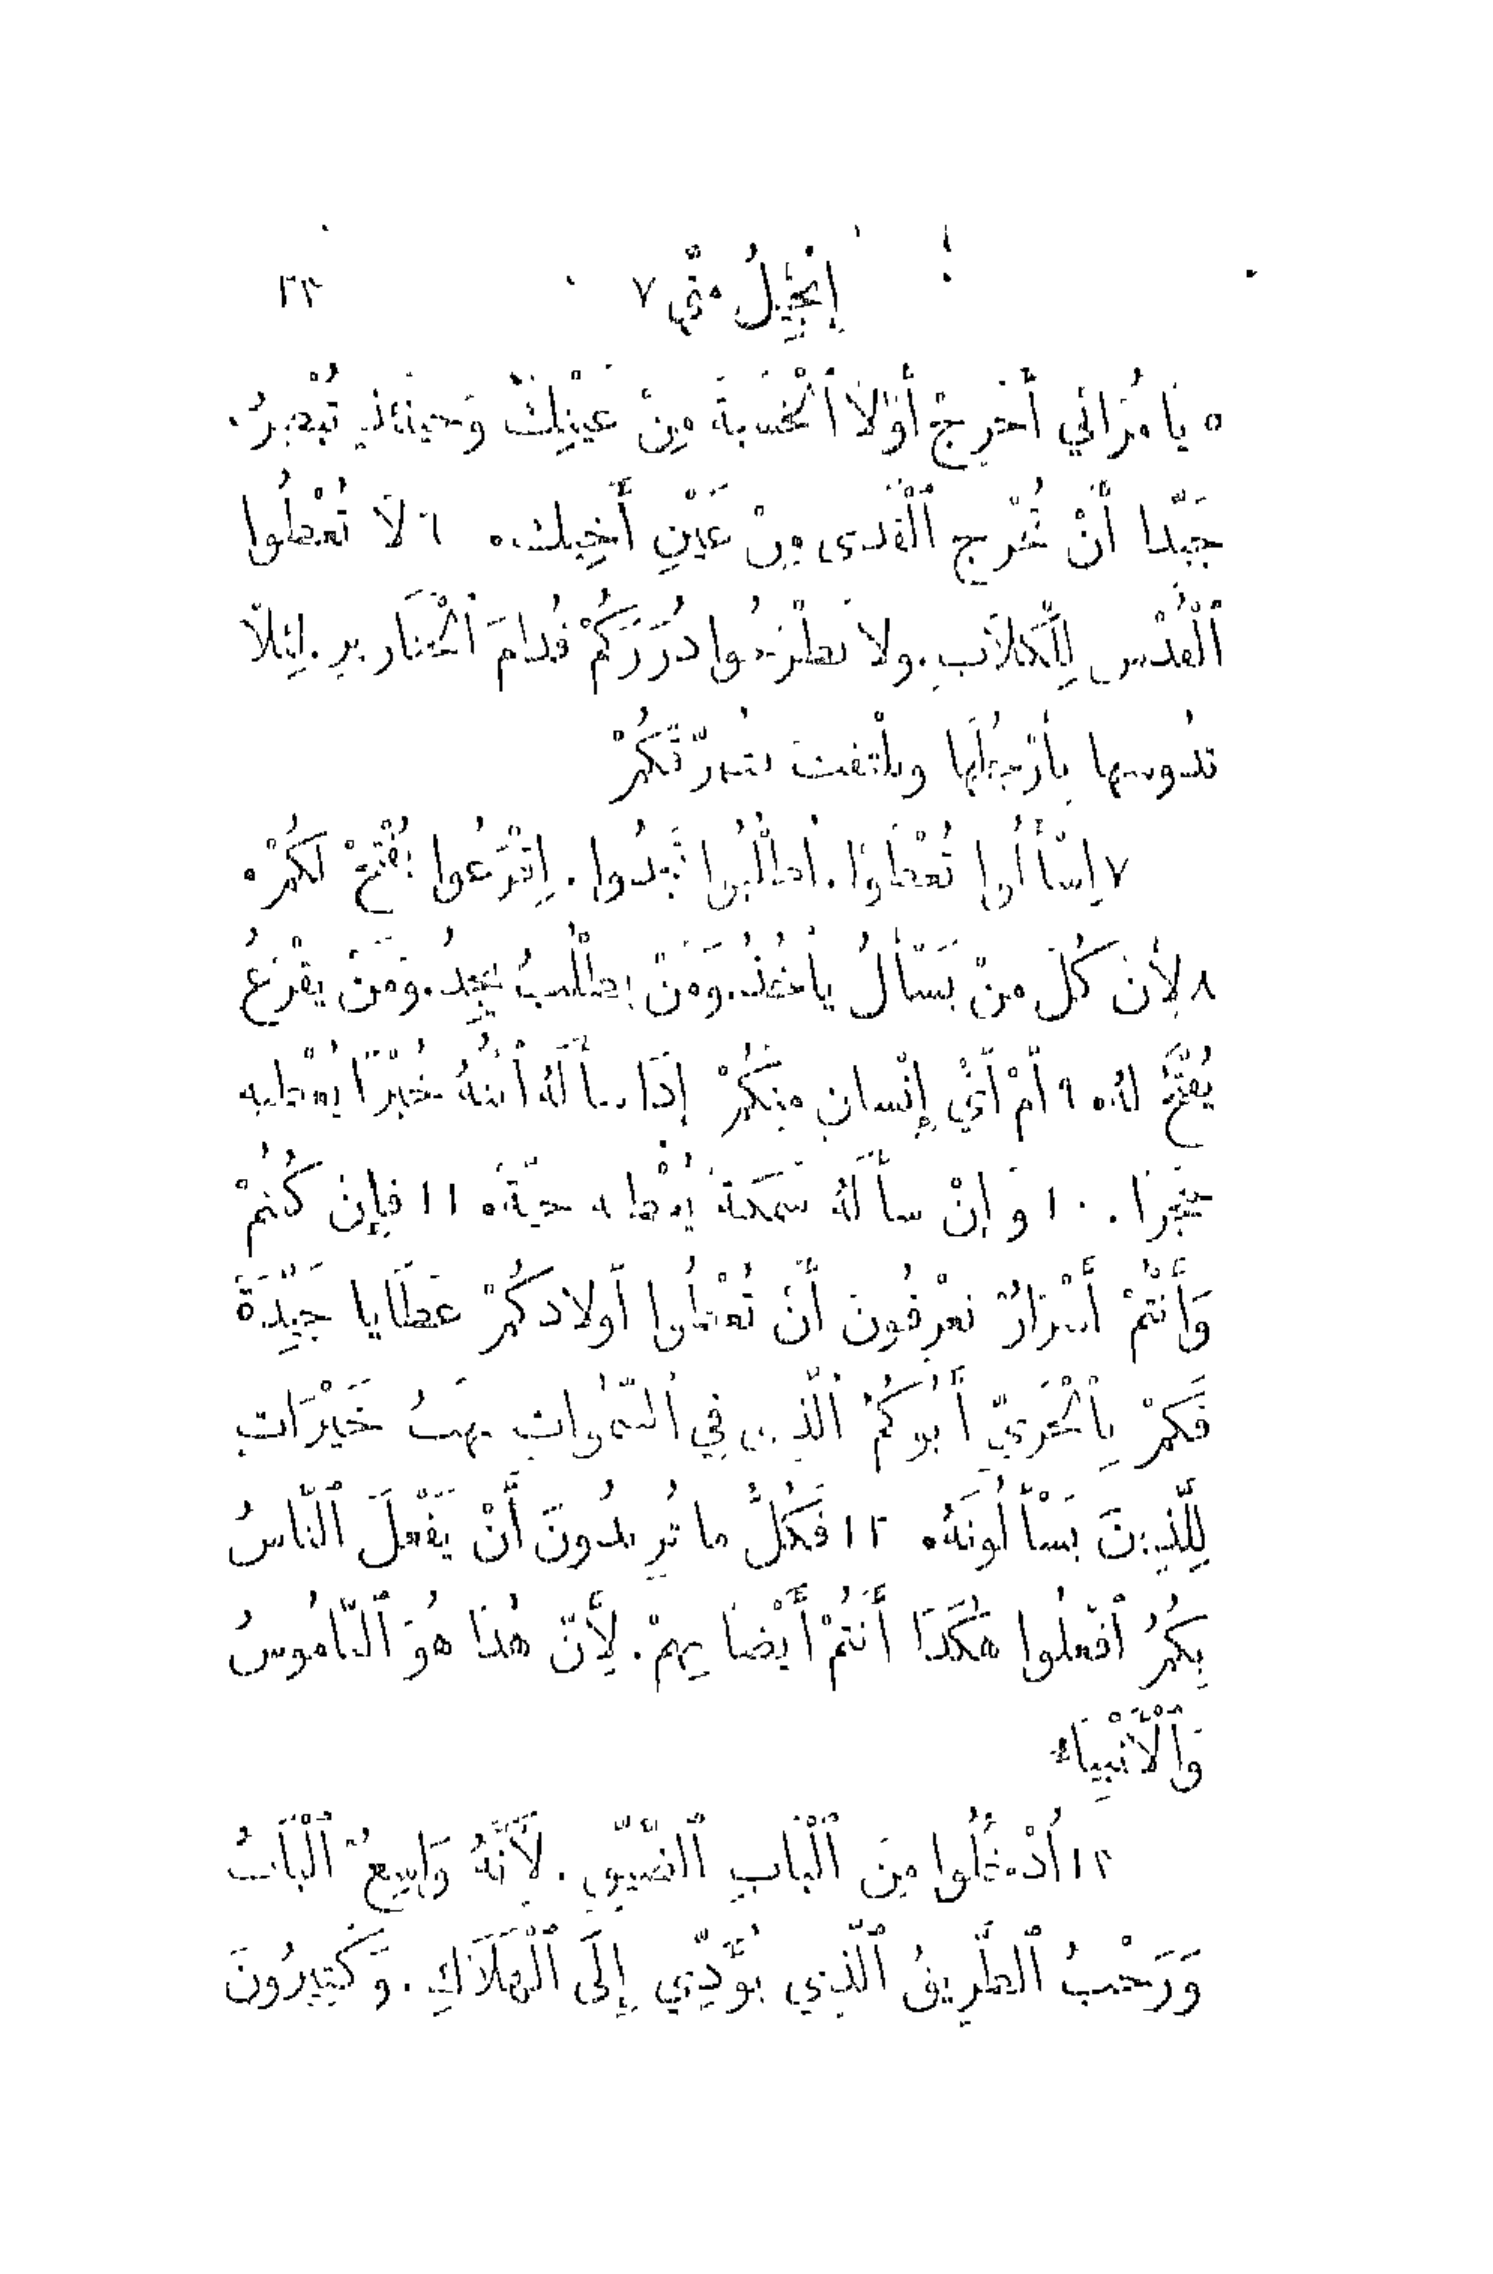 إِنْجِيلُ مَتَّى ٧ ٢٣
٥ يَا مُرَائِي أَخْرِجْ أَوَّلاً ٱلْخَشَبَةَ مِنْ عَيْنِكَ وَحِينَئِذٍ تُبْصِرُ
جَيِّدًا أَنْ تُخْرِجَ ٱلْقَذَى مِنْ عَيْنِ أَخِيكَ ٥ ٦ لاَ تُعْطُوا
ٱلْقُدْسَ لِلْكِلاَبِ. وَلاَ تَطْرَحُوا دُرَرَكُمْ قُدَّامَ ٱلْخَنَازِيرِ. لِئَلاَّ
تَدُوسَهَا بِأَرْجُلِهَا وَتَلْتَفِتَ فَتُمَزِّقَكُمْ
٧ اِسْأَلُوا تُعْطَوْا. أُطْلُبُوا تَجِدُوا. اِقْرَعُوا يُفْتَحْ لَكُمْ ٥
٨ لِأَنَّ كُلَّ مَنْ يَسْأَلُ يَأْخُذُ. وَمَنْ يَطْلُبُ يَجِدُ. وَمَنْ يَقْرَعُ
يُفْتَحُ لَهُ ٥ ٩ أَمْ أَيُّ إِنْسَانٍ مِنْكُمْ إِذَا سَأَلَهُ ٱبْنُهُ خُبْزًا يُعْطِيهِ
حَجَرًا. ١٠ وَإِنْ سَأَلَهُ سَمَكَةً يُعْطِيهِ حَيَّةً ٥ ١١ فَإِنْ كُنْتُمْ
وَأَنْتُمْ أَشْرَارٌ تَعْرِفُونَ أَنْ تُعْطُوا أَوْلاَدَكُمْ عَطَايَا جَيِّدَةً
فَكَمْ بِٱلْحَرِيِّ أَبُوكُمُ ٱلَّذِي فِي ٱلسَّمٰوَاتِ يَهَبُ خَيْرَاتٍ
لِلَّذِينَ يَسْأَلُونَهُ ٥ ١٢ فَكُلُّ مَا تُرِيدُونَ أَنْ يَفْعَلَ ٱلنَّاسُ
بِكُمُ ٱفْعَلُوا هٰكَذَا أَنْتُمْ أَيْضًا بِهِمْ. لِأَنَّ هٰذَا هُوَ ٱلنَّامُوسُ
وَٱلْأَنْبِيَاءُ
١٣ اُدْخُلُوا مِنَ ٱلْبَابِ ٱلضَّيِّقِ. لِأَنَّهُ وَاسِعٌ ٱلْبَابُ
وَرَحْبٌ ٱلطَّرِيقُ ٱلَّذِي يُؤَدِّي إِلَى ٱلْهَلاَكِ. وَكَثِيرُونَ